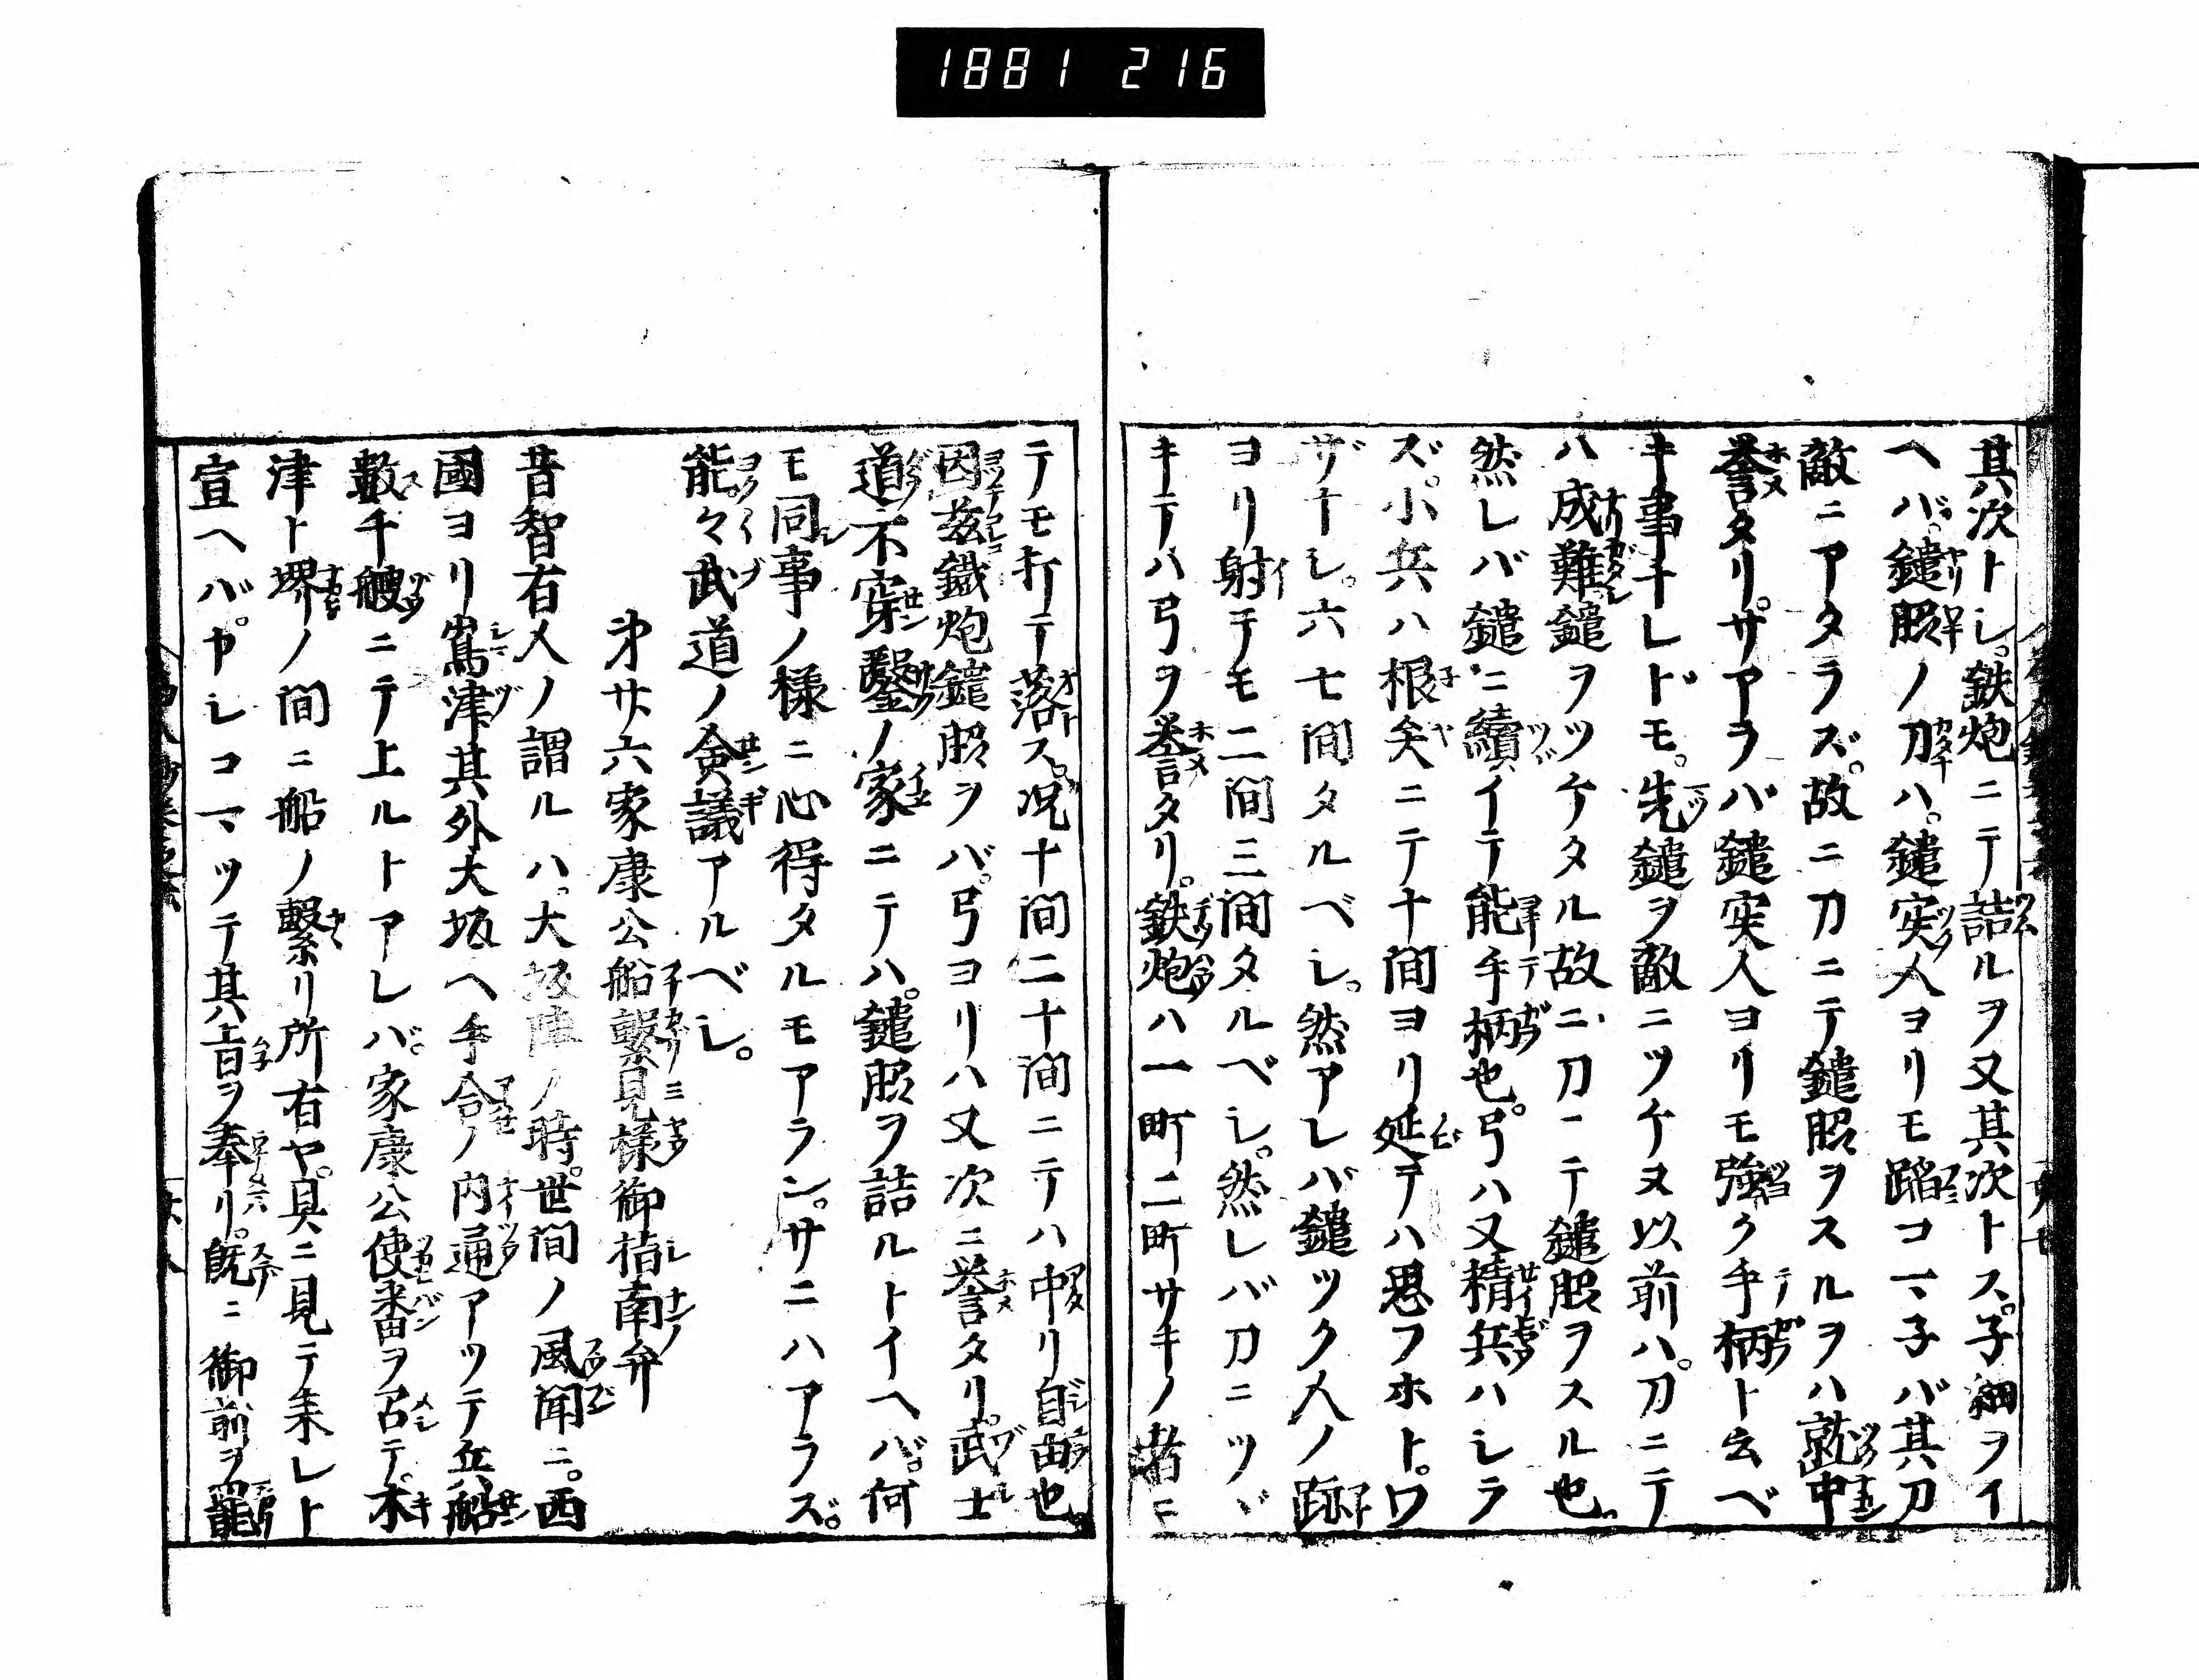 1881 216
其次トシ。鉄炮ニテ詰ルヲ又其次トス。子細ヲイ
ヘバ。鑓脇ノ刀ハ。鑓突人ヨリモ蹈コマ子バ其刀
敵ニアタラズ。故ニ刀ニテ鑓脇ヲスルヲハ就中
誉タリ。サアラバ鑓突人ヨリモ強ク手柄ト云ベ
キ事ナレドモ。先鑓ヲ敵ニツケヌ以前ハ。刀ニテ
ハ成難。鑓ヲツケタル故ニ刀ニテ鑓脇ヲスル也。
然レバ鑓ニ續イテ能手柄也。弓ハ又精兵ハシラ
ズ。小兵ハ根矢ニテ十間ヨリ延テハ思フホト。ワ
ザナシ。六七間タルベシ。然アレバ鑓ツク人ノ跡
ヨリ射テモ二間三間タルベシ。然レバ刀ニツヾ
キテハ弓ヲ誉タリ。鉄炮ハ一町二町サキノ者ニ
テモ打テ落ス。况十間二十間ニテハ中リ自由也。
因茲鐵炮鑓脇ヲバ。弓ヨリハ又次ニ誉タリ。武士
道不穿鑿ノ家ニテハ。鑓脇ヲ詰ルトイヘバ。何
モ同事ノ様ニ心得タルモアラン。サニハアラズ。
能々武道ノ僉議アルベシ。
㐧廾六家康公船繋見様御指南弁
昔智有人ノ謂ルハ。大坂陣ノ時。世間ノ風聞ニ。西
國ヨリ嶌津其外大坂ヘ手合ノ内通アツテ兵船
數千艘ニテ上ルトアレバ。家康公使番ヲ召テ。木
津ト堺ノ間ニ船ノ繋リ所有ヤ。具ニ見テ来レト
宣ヘバ。カシコマツテ其旨ヲ奉リ。既ニ御前ヲ罷